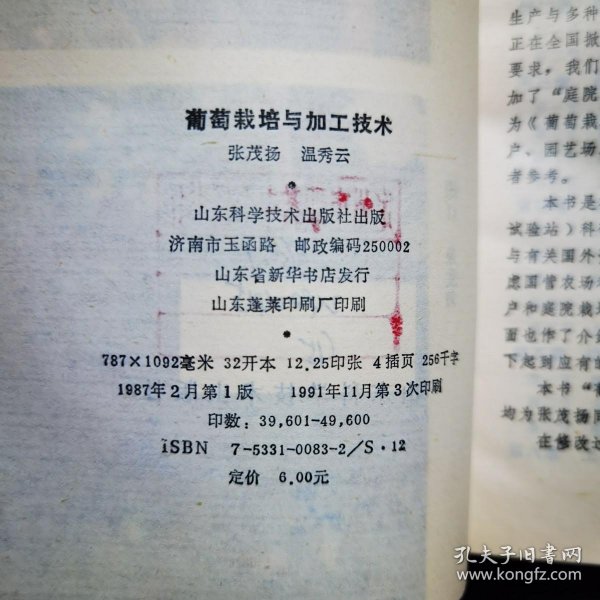 葡萄栽培与加工技术
张茂扬 温秀云
山东科学技术出版社出版
济南市玉函路 邮政编码250002
山东省新华书店发行
山东蓬莱印刷厂印刷
787×1092毫米 32开本 12.25印张 4插页 256千字
1987年2月第1版 1991年11月第3次印刷
印数：39,601-49,600
ISBN 7-5331-0083-2/S·12
定价 6.00元
生产与多种
正在全国掀
要求，我们
加了“庭院
为《葡萄栽
户、园艺场
者参考。
本书是
试验站）科
与有关国外
虑国营农场
户和庭院栽
面也作了介
下起到应有的
本书“
均为张茂扬同
在修改过
孔夫子旧书网
www.kongfz.com